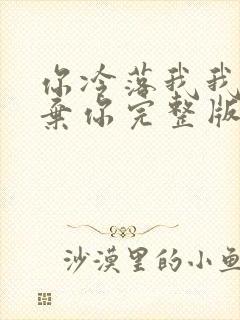 你冷落我我
弃你完整版
沙漠里的小鱼